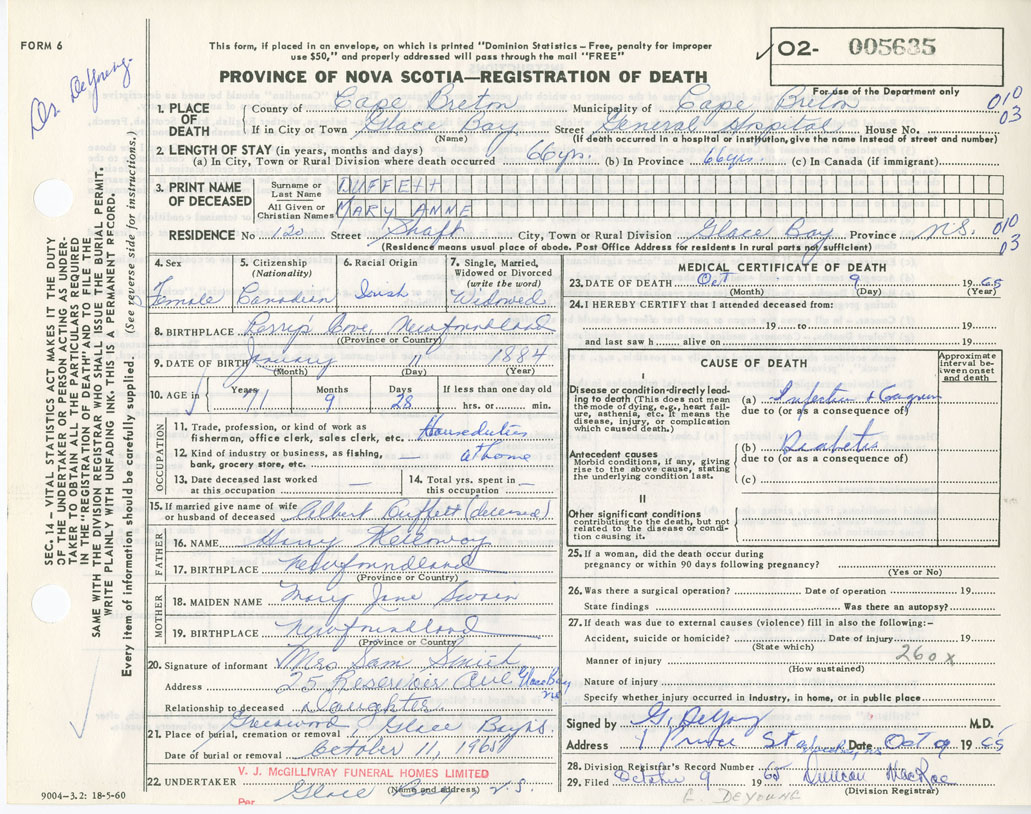 FORM 6
Dr. DeYoung
This form, if placed in an envelope, on which is printed "Dominion Statistics – Free, penalty for improper
use $50," and properly addressed will pass through the mail "FREE"
PROVINCE OF NOVA SCOTIA—REGISTRATION OF DEATH
02- 005635
For use of the Department only
010
03
1. PLACE OF DEATH
County of Cape Breton Municipality of Cape Breton
If in City or Town Glace Bay Street General Hospital House No.
(Name) (If death occurred in a hospital or institution, give the name instead of street and number)
2. LENGTH OF STAY (in years, months and days)
(a) In City, Town or Rural Division where death occurred 66 yrs. (b) In Province 66 yrs. (c) In Canada (if immigrant)
3. PRINT NAME OF DECEASED
Surname or Last Name DUFFEtt
All Given or Christian Names MARY ANNE
RESIDENCE No 120 Street Shaft City, Town or Rural Division Glace Bay Province N.S. 010
03
(Residence means usual place of abode. Post Office Address for residents in rural parts not sufficient)
4. Sex Female
5. Citizenship (Nationality) Canadian
6. Racial Origin Irish
7. Single, Married, Widowed or Divorced (write the word) Widowed
8. BIRTHPLACE Cove, Newfoundland
(Province or Country)
9. DATE OF BIRTH January 11 1884
(Month) (Day) (Year)
10. AGE in Years 71 Months 9 Days 28 If less than one day old
hrs. or min.
OCCUPATION
11. Trade, profession, or kind of work as
fisherman, office clerk, sales clerk, etc. Houseduties
12. Kind of industry or business, as fishing,
bank, grocery store, etc. — at home
13. Date deceased last worked
at this occupation —
14. Total yrs. spent in
this occupation —
15. If married give name of wife
or husband of deceased Albert Duffett (deceased)
FATHER
16. NAME Harry
17. BIRTHPLACE Newfoundland
(Province or Country)
MOTHER
18. MAIDEN NAME Mary Jane
19. BIRTHPLACE Newfoundland
(Province or Country)
20. Signature of informant Mrs Sam Smith
Address 25 Reservoir Ave Glace Bay
NS
Relationship to deceased Daughter
21. Place of burial, cremation or removal Greenwood, Glace Bay NS.
Date of burial or removal October 11, 1965
22. UNDERTAKER V. J. McGILLIVRAY FUNERAL HOMES LIMITED
(Name and address)
Per Glace Bay, N.S.
9004–3.2: 18-5-60
MEDICAL CERTIFICATE OF DEATH
23. DATE OF DEATH Oct 9 1965
(Month) (Day) (Year)
24. I HEREBY CERTIFY that I attended deceased from:
19 to 19
and last saw h alive on 19
CAUSE OF DEATH
Approximate interval between onset and death
I
Disease or condition directly leading to death (This does not mean the mode of dying, e.g., heart failure, asthenia, etc. It means the disease, injury, or complication which caused death.)
(a) Infection & Gangrene
due to (or as a consequence of)
Antecedent causes
Morbid conditions, if any, giving rise to the above cause, stating the underlying condition last.
(b) Diabetes
due to (or as a consequence of)
(c)
II
Other significant conditions
contributing to the death, but not related to the disease or condition causing it.
25. If a woman, did the death occur during
pregnancy or within 90 days following pregnancy?
(Yes or No)
26. Was there a surgical operation? Date of operation 19
State findings Was there an autopsy?
27. If death was due to external causes (violence) fill in also the following:–
Accident, suicide or homicide? Date of injury 19
(State which)
Manner of injury 260x
(How sustained)
Nature of injury
Specify whether injury occurred in industry, in home, or in public place
Signed by G. DeYoung M.D.
Address 1 Prince St Date Oct 9 1965
28. Division Registrar's Record Number
29. Filed October 9 1965 Duncan MacRae
(Division Registrar)
DEYOUNG
SEC. 14 – VITAL STATISTICS ACT MAKES IT THE DUTY
OF THE UNDERTAKER OR PERSON ACTING AS UNDER-
TAKER TO OBTAIN ALL THE PARTICULARS REQUIRED
IN THE "REGISTRATION OF DEATH" AND TO FILE THE
SAME WITH THE DIVISION REGISTRAR WHO SHALL ISSUE THE BURIAL PERMIT.
WRITE PLAINLY WITH UNFADING INK. THIS IS A PERMANENT RECORD.
Every item of information should be carefully supplied. (See reverse side for instructions.)